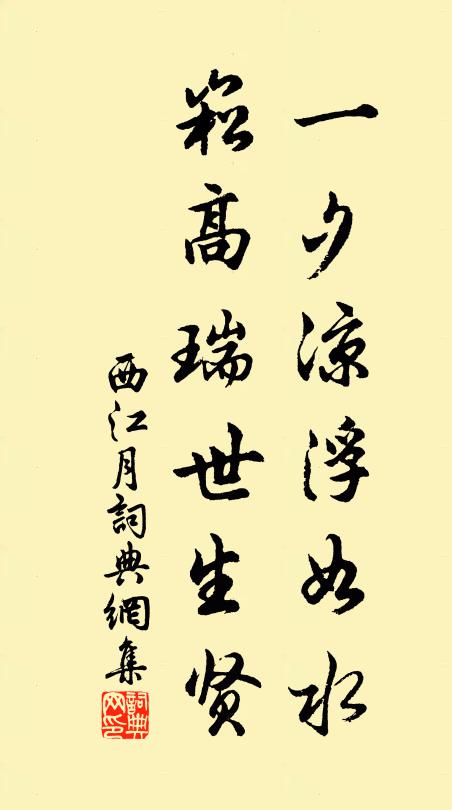 一夕凉浮如水
崧高瑞世生贤
西江月詞典網集
詞典网印